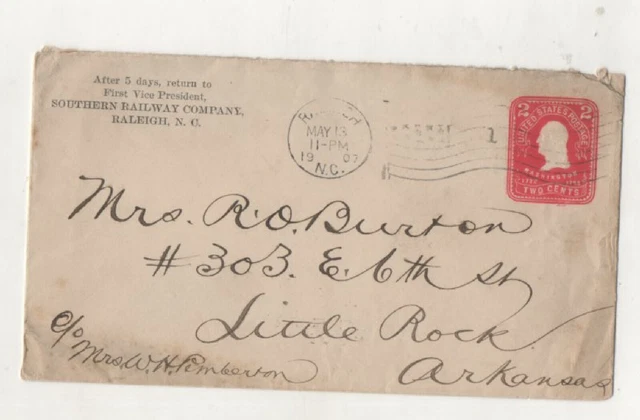 After 5 days, return to
First Vice President,
SOUTHERN RAILWAY COMPANY,
RALEIGH, N. C.
MAY 13
11-PM
1907
N.C.
1
2 2
UNITED STATES POSTAGE
WASHINGTON
TWO CENTS
Mrs. R. O. Burton
#303. E. 6th St
Little Rock
Arkansas
c/o
Mrs. W. H. Pemberton